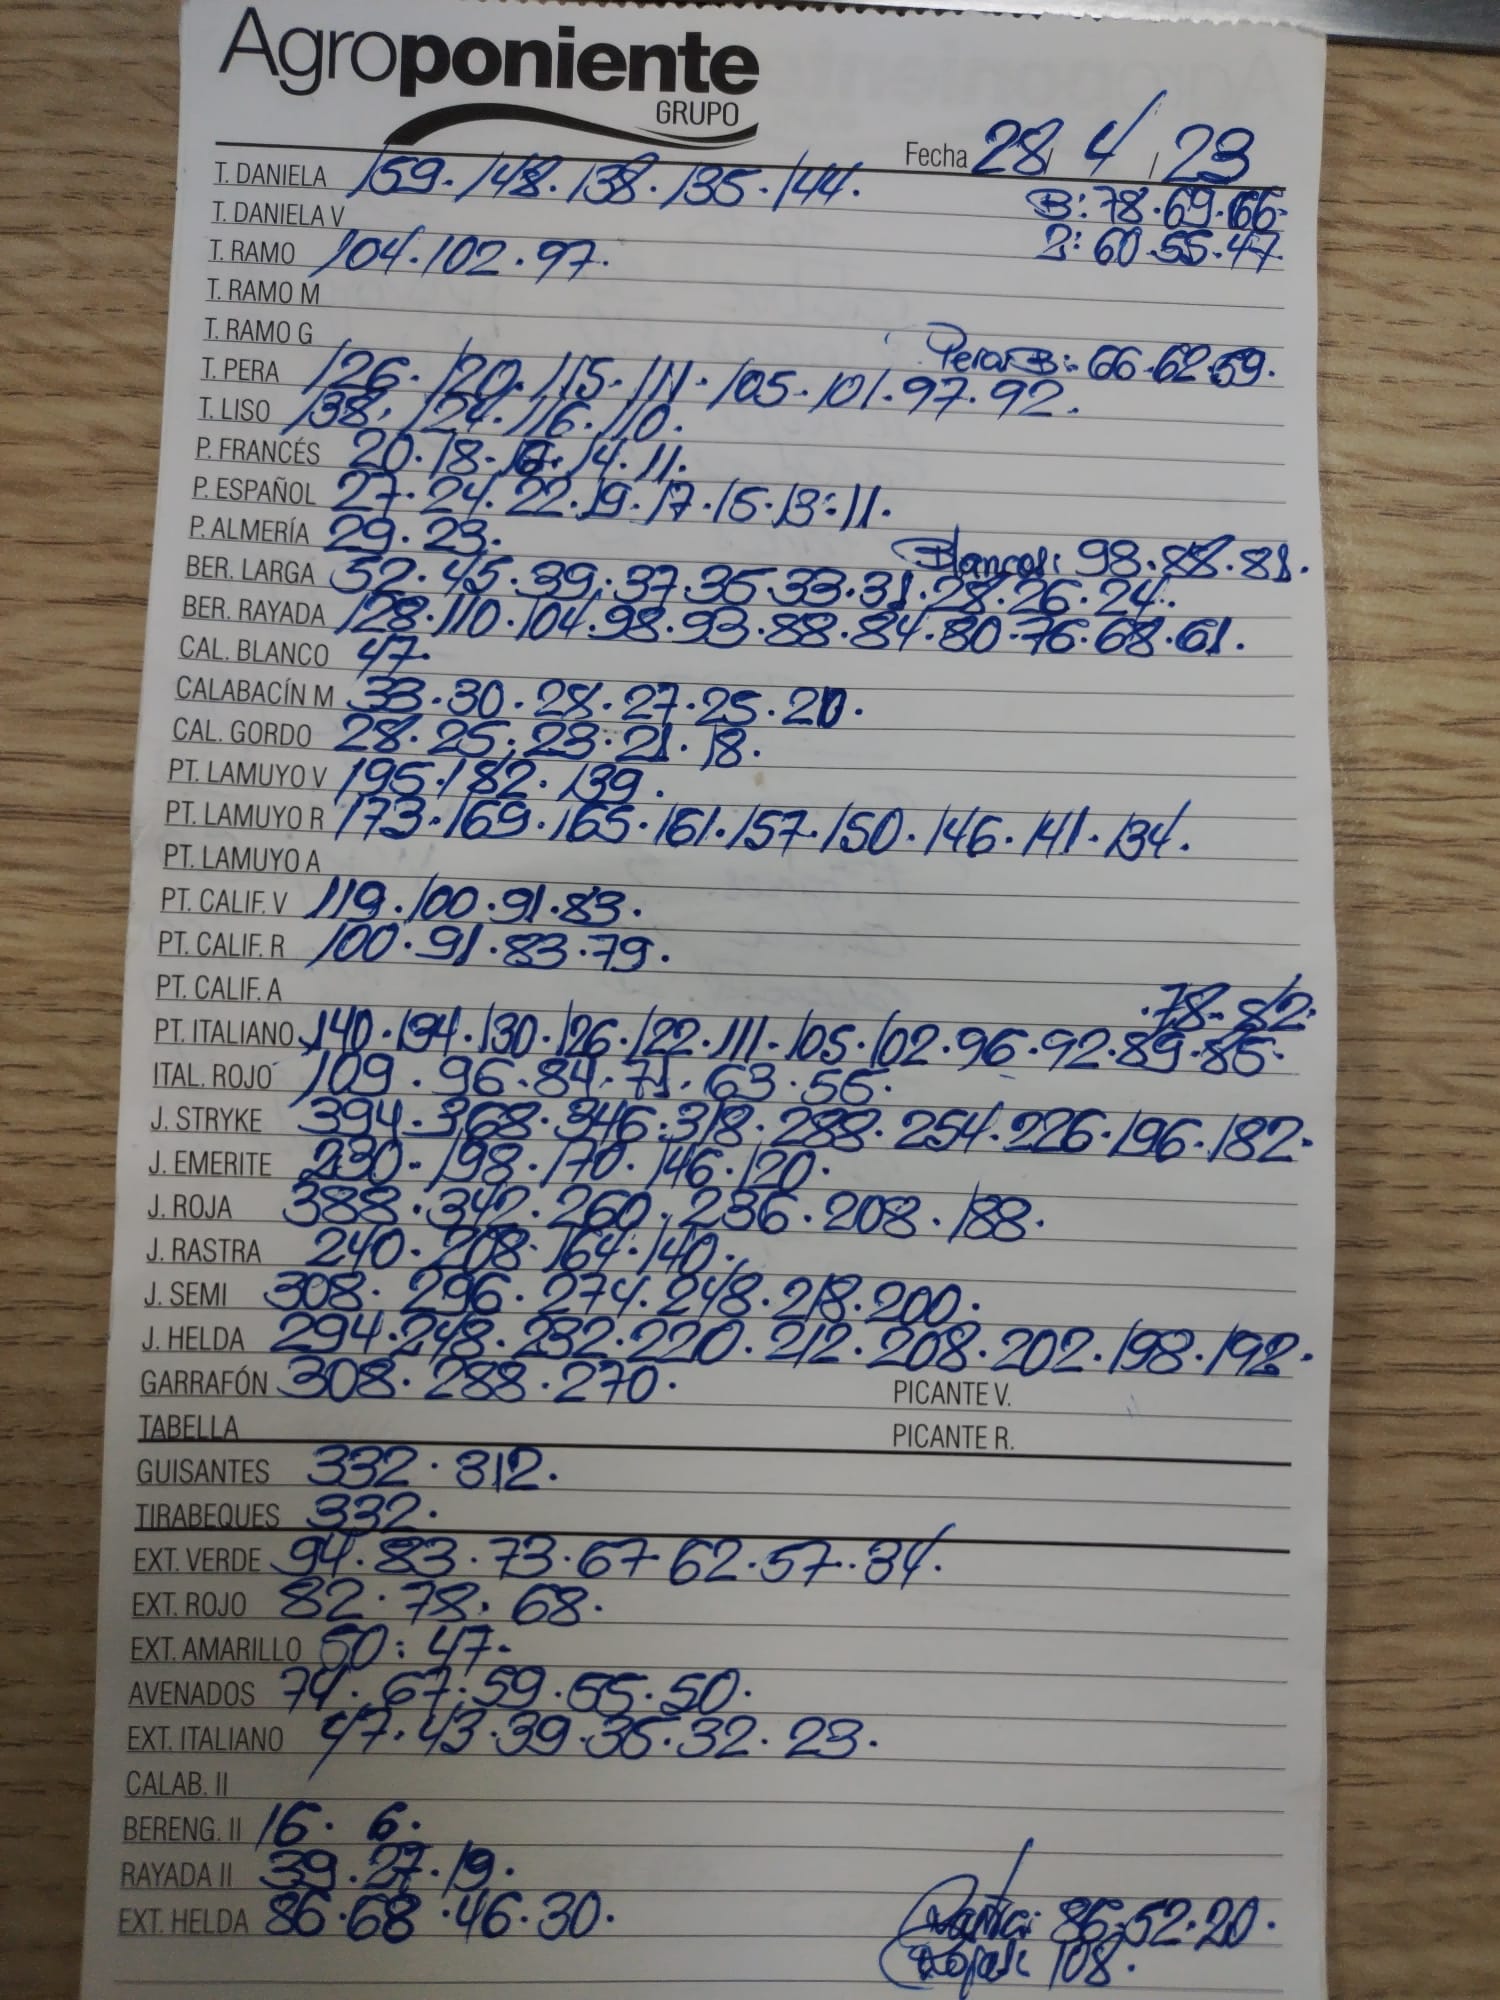 Agroponiente
GRUPO
Fecha 28/ 4 / 23
T. DANIELA 159. 148. 138. 135. 144.
B: 78.69.66.
T. DANIELA V
2: 60.55.47.
T. RAMO 104.102.97.
T. RAMO M
T. RAMO G
Pera B: 66.62.59.
T. PERA 126. 120. 115. 111. 105. 101. 97. 92.
T. LISO 138. 124. 116. 110.
P. FRANCÉS 20. 18. 16. 14. 11.
P. ESPAÑOL 27. 24. 22. 19. 17. 15. 13. 11.
P. ALMERÍA 29. 23.
Blancas: 98. 88. 81.
BER. LARGA 52. 45. 39. 37. 35. 33. 31. 28. 26. 24.
BER. RAYADA 128. 110. 104. 98. 93. 88. 84. 80. 76. 68. 61.
CAL. BLANCO 47.
CALABACÍN M 33. 30. 28. 27. 25. 20.
CAL. GORDO 28. 25. 23. 21. 18.
PT. LAMUYO V 195. 182. 139.
PT. LAMUYO R 173. 169. 165. 161. 157. 150. 146. 141. 134.
PT. LAMUYO A
PT. CALIF. V 119. 100. 91. 83.
PT. CALIF. R 100. 91. 83. 79.
PT. CALIF. A
.78. 52.
PT. ITALIANO 140. 134. 130. 126. 122. 111. 105. 102. 96. 92. 89. 85.
ITAL. ROJO 109. 96. 84. 71. 63. 55.
J. STRYKE 394. 368. 346. 318. 288. 254. 226. 196. 182.
J. EMERITE 230. 198. 170. 146. 120.
J. ROJA 388. 342. 260. 236. 208. 188.
J. RASTRA 240. 208. 164. 140.
J. SEMI 308. 296. 274. 248. 218. 200.
J. HELDA 294. 248. 232. 220. 212. 208. 202. 198. 192.
GARRAFÓN 308. 288. 270. PICANTE V.
TABELLA PICANTE R.
GUISANTES 332. 312.
TIRABEQUES 332.
EXT. VERDE 94. 83. 73. 67 62. 57. 34.
EXT. ROJO 82. 78. 68.
EXT. AMARILLO 50. 47.
AVENADOS 74. 67. 59. 55. 50.
EXT. ITALIANO 47. 43. 39. 35. 32. 23.
CALAB. II
BERENG. II 16. 6.
RAYADA II 39. 27. 19.
EXT. HELDA 86. 68. 46. 30.
86. 52. 20.
108.